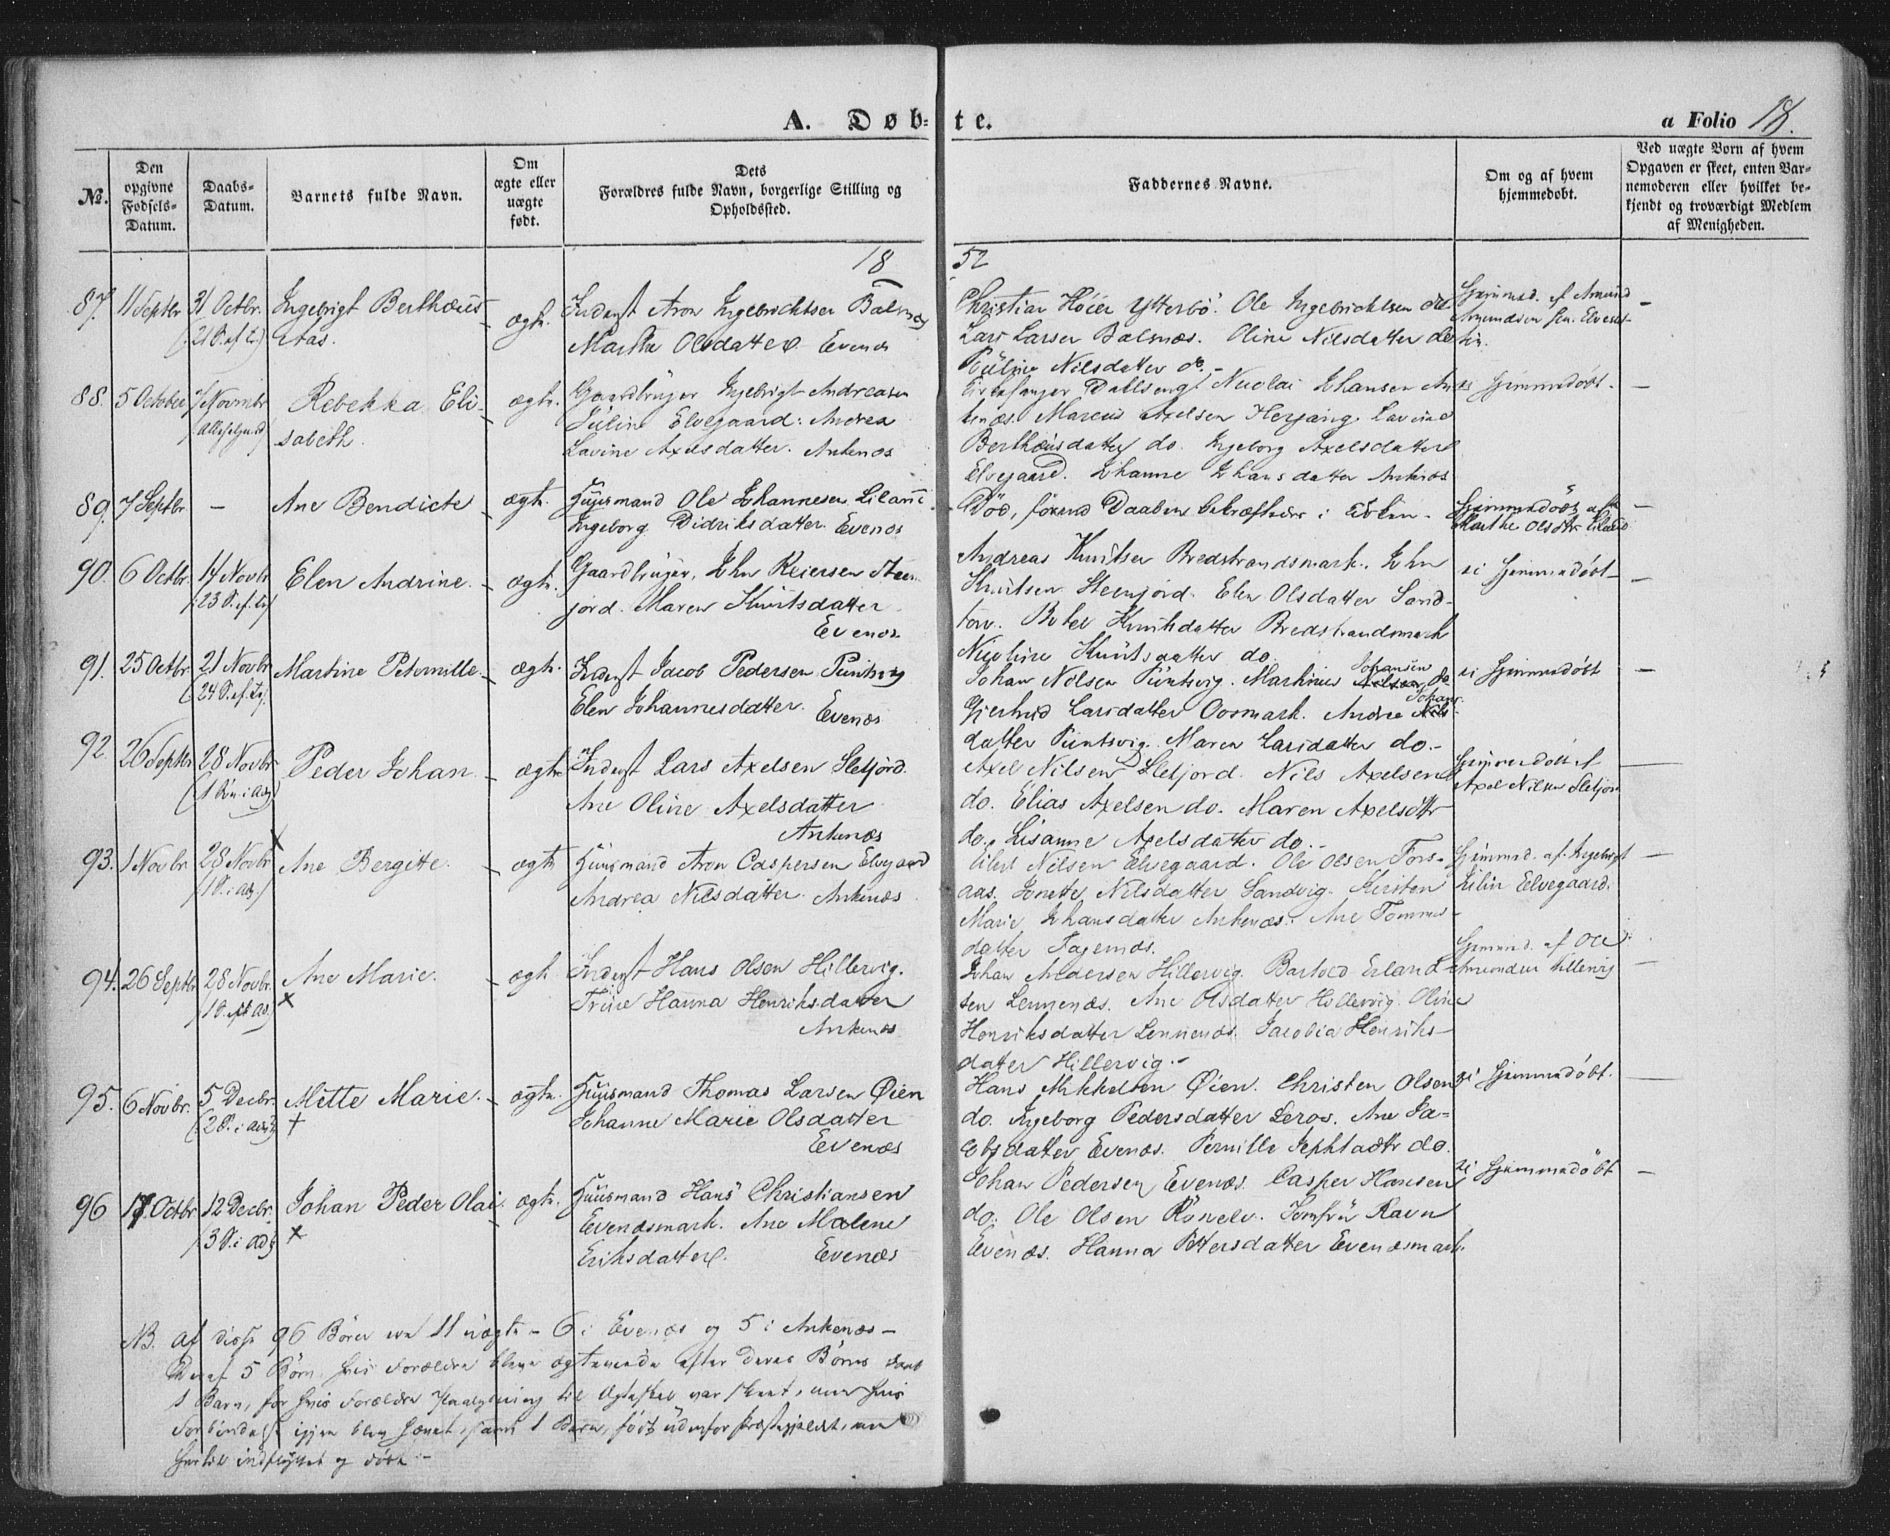 A. Døb- te.
a Folio 18.
No.
Den opgivne Fødsels-Datum.
Daabs-Datum.
Barnets fulde Navn.
Om ægte eller uægte født.
Dets Forældres fulde Navn, borgerlige Stilling og Opholdssted.
Faddernes Navne.
Om og af hvem hjemmedøbt.
Ved uægte Børn af hvem Opgaven er skeet, enten Barnemoderen eller hvilket bekjendt og troværdigt Medlem af Menigheden.
18 52
87. 11 Septbr 31 Octbr. Ingebrigt Berthæus ægte. Inderst Aron Ingebrichtsen Balsnæs
Martha Olsdatter. Evenæs
Christian Höier Ytterbö. Ole Ingebrichtsen
Lars Larsen Balsnæs. Oline Nilsdatter do
Nilsdatter do.
88. 5 October 7 Novmbr Rebekka Eli-
sabeth. ægte. Gaardbruger Ingebrigt Andreasen
Elvegaard. Andrea
Lavine Axelsdatter. Ankenæs
Nicolai Johansen An-
kenæs. Marcus Axelsen Herjang. Lavine
Berthæusdatter do. Ingeborg Axelsdatter
Elvegaard. Johanne Johansdatter Ankenæs
ei Hjemmedøbt. —
89. 7 Septbr — Ane Bendicte ægte. Huusmand Ole Johannesen
Ingeborg Didriksdatter. Evenæs
Død, førend Daaben bekræftedes i Kirken.
Hjemmedøbt af
Marthe Olsdtr
90. 6 Octbr 14 Novbr Elen Andrine. — ægte. Gaardbruger, John Reiersen Steen-
jord. Maren Knutsdatter
Evenæs
(23 S. ef. Tr)
Andreas Knutsen Bredstrandsmark. John
Knutsen Steenjord. Elen Olsdatter Sand-
torv. Knutsdatter Bredstrandsmark
Nicoline Knutsdatter do.
ei Hjemmedøbt —
91. 25 Octbr 21 Novbr Martine Petornille. ægte. Inderst Jacob Pedersen Puntsvig
Elen Johannesdatter. Evenæs
(24 S. ef. Tr)
Johan Nilsen Puntsvig. Martinus Johansen do
Gjertrud Larsdatter Oosmark. Andrea Johans-
datter Puntsvig. Maren Larsdatter do.
ei Hjemmedøbt —
92. 26 Septbr 28 Novbr Peder Johan. — ægte Inderst Lars Axelsen Sletjord.
Ane Oline Axelsdatter
Ankenæs
Axel Nilsen Sletjord. Nils Axelsen
do. Elias Axelsen do. Maren Axelsdtr
do. Lisanne Axelsdatter do.
Hjemmedøbt af
Axel Nilsen Sletjord
93. 1 Novbr 28 Novbr Ane Bergitte. — ægte Huusmand Aron Caspersen Elvegaard
Andrea Nilsdatter. Ankenæs
Nilsen Elvegaard. Ole Olsen Fors-
aas. Nilsdatter Sandvig. Kirsten
Marie Johansdatter Ankenæs. Ane Tommes-
datter Fagernæs.
Hjemmed. af Ingebrigt
Elvegaard.
94. 26 Septbr 28 Novbr. Ane Marie. — ægte. Inderst Hans Olsen Hillervig.
Trine Hanna Henriksdatter
Ankenæs
Johan Andersen Hillervig. Erland-
sen Lennenæs. Ane Olsdatter Hillervig. Oline
Henriksdatter Lennenæs. Jacobia Henriks-
datter Hillervig.
Hjemmed. af Ole
Hillervig
95. 6 Novbr. 5 Decbr. Mette Marie. — ægte. Huusmand Thomas Larsen Øien
Johanne Marie Olsdatter
Evenæs
(2 S. i Adv)
Hans Mikkelsen Øien. Christen Olsen
do. Ingeborg Pedersdatter Leros. Ane Ja-
cobsdatter Evenæs. Pernille Jephtadtr do.
ei Hjemmedøbt. —
96 17 Octbr 12 Decbr. Johan Peder Olai. ægte. Huusmand Hans Christiansen
Evenæsmark. Ane Malene
Eriksdatter. Evenæs
(3 S. i Adv)
Johan Pedersen Evenæs. Casper Hansen
do. Ole Olsen. Jomfru Ravn
Evenæs. Hanna Pettersdatter Evenæsmark.
ei Hjemmedøbt —
NB. Af disse 96 Børn ere 11 uægte — 6 i Evenæs og 5 i Ankenæs —
Deraf 5 Børn, hvis Forældre bleve ægteviede efter deres Børns
1 Barn, for hvis Forældre til Ægteskab var skeet, men hvis
Forbindelse igjen blev hævet, samt 1 Barn, født udenfor Præstegjeldet, men
hertil indflyttet og døbt. —